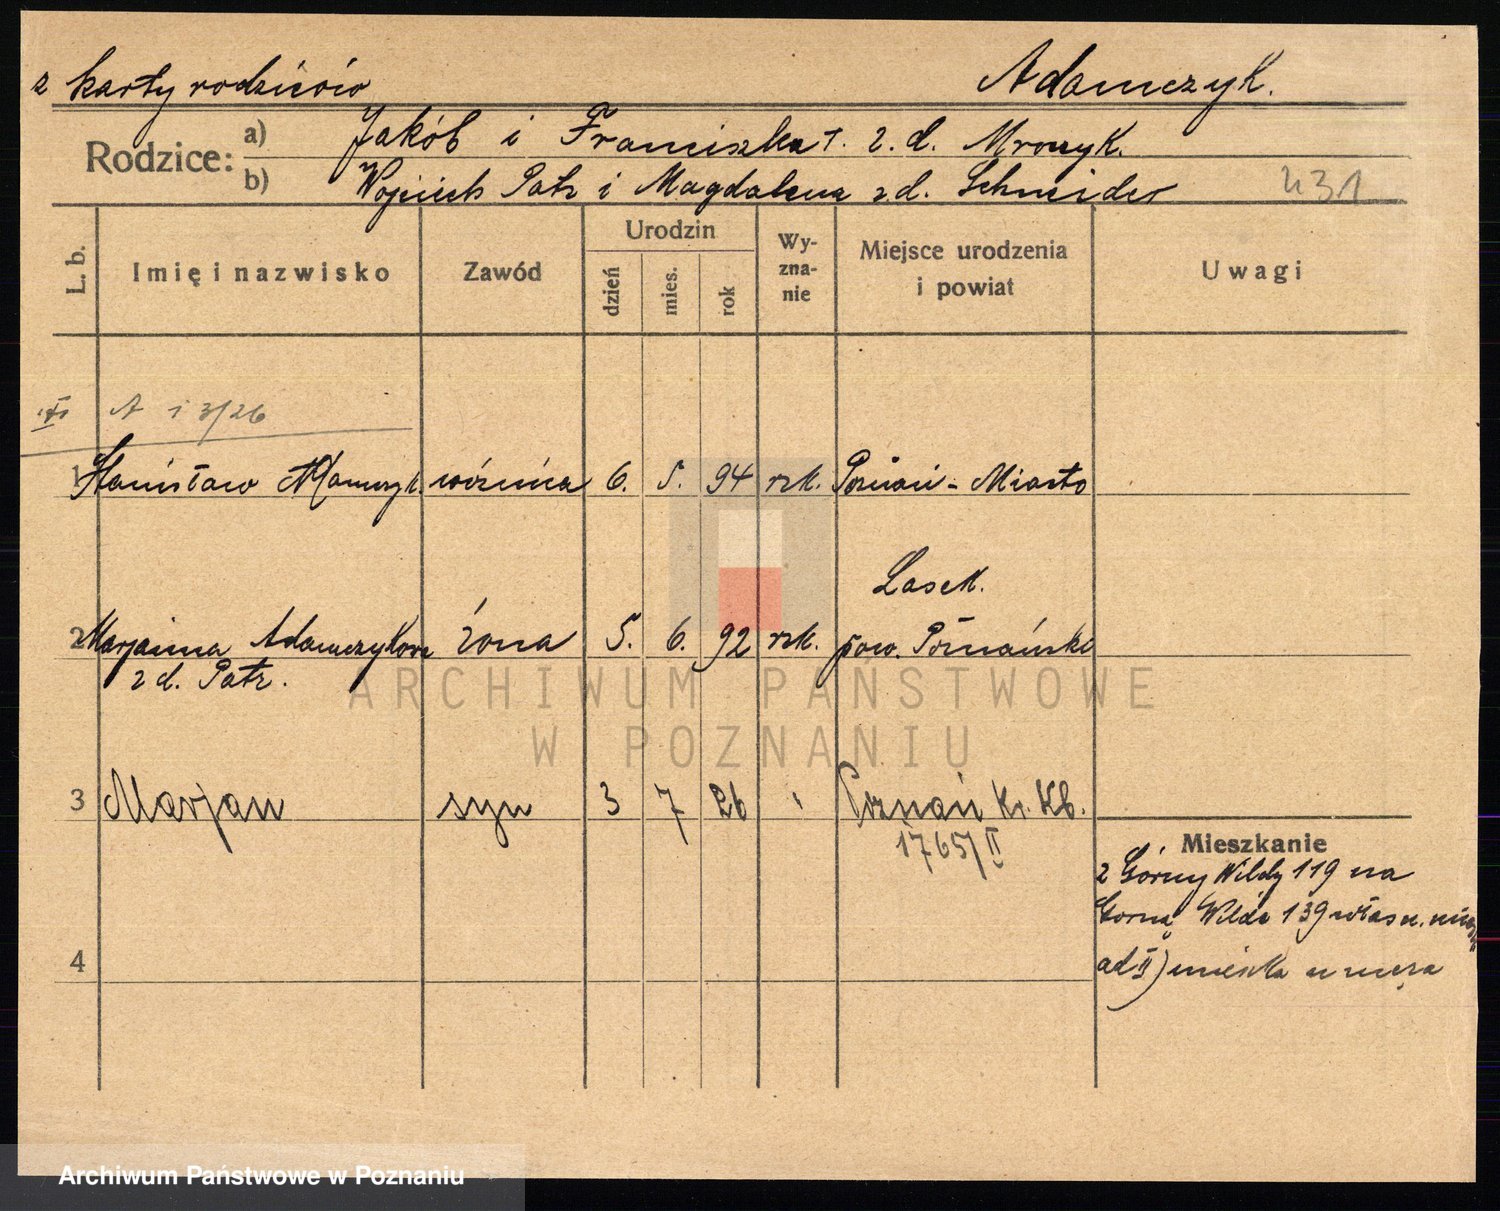 z karty rodziców
Adamczyk.
Rodzice:
a) Jakób i Franciszka z. d. Mroczyk.
b) Wojciech Patz i Magdalena z d. Schneider
431
L. b.
Imię i nazwisko
Zawód
Urodzin
dzień
mies.
rok
Wy-
zna-
nie
Miejsce urodzenia
i powiat
Uwagi
A i 3/26
1 Stanisław Adamczyk. woźnica 6. 5. 94 rzk. Poznań - Miasto
Lasek.
2 Marjanna Adamczykowa żona 5. 6. 92 rzk. pow. Poznański
z d. Patz.
3 Marjan syn 3 7 26 " Poznań Kr. Kb.
1765/II
Mieszkanie
z Górny Wildy 119 na
Górną Wildę 139 własn.
4
ad II) mieszka u męża
ARCHIWUM PAŃSTWOWE
W POZNANIU
Archiwum Państwowe w Poznaniu